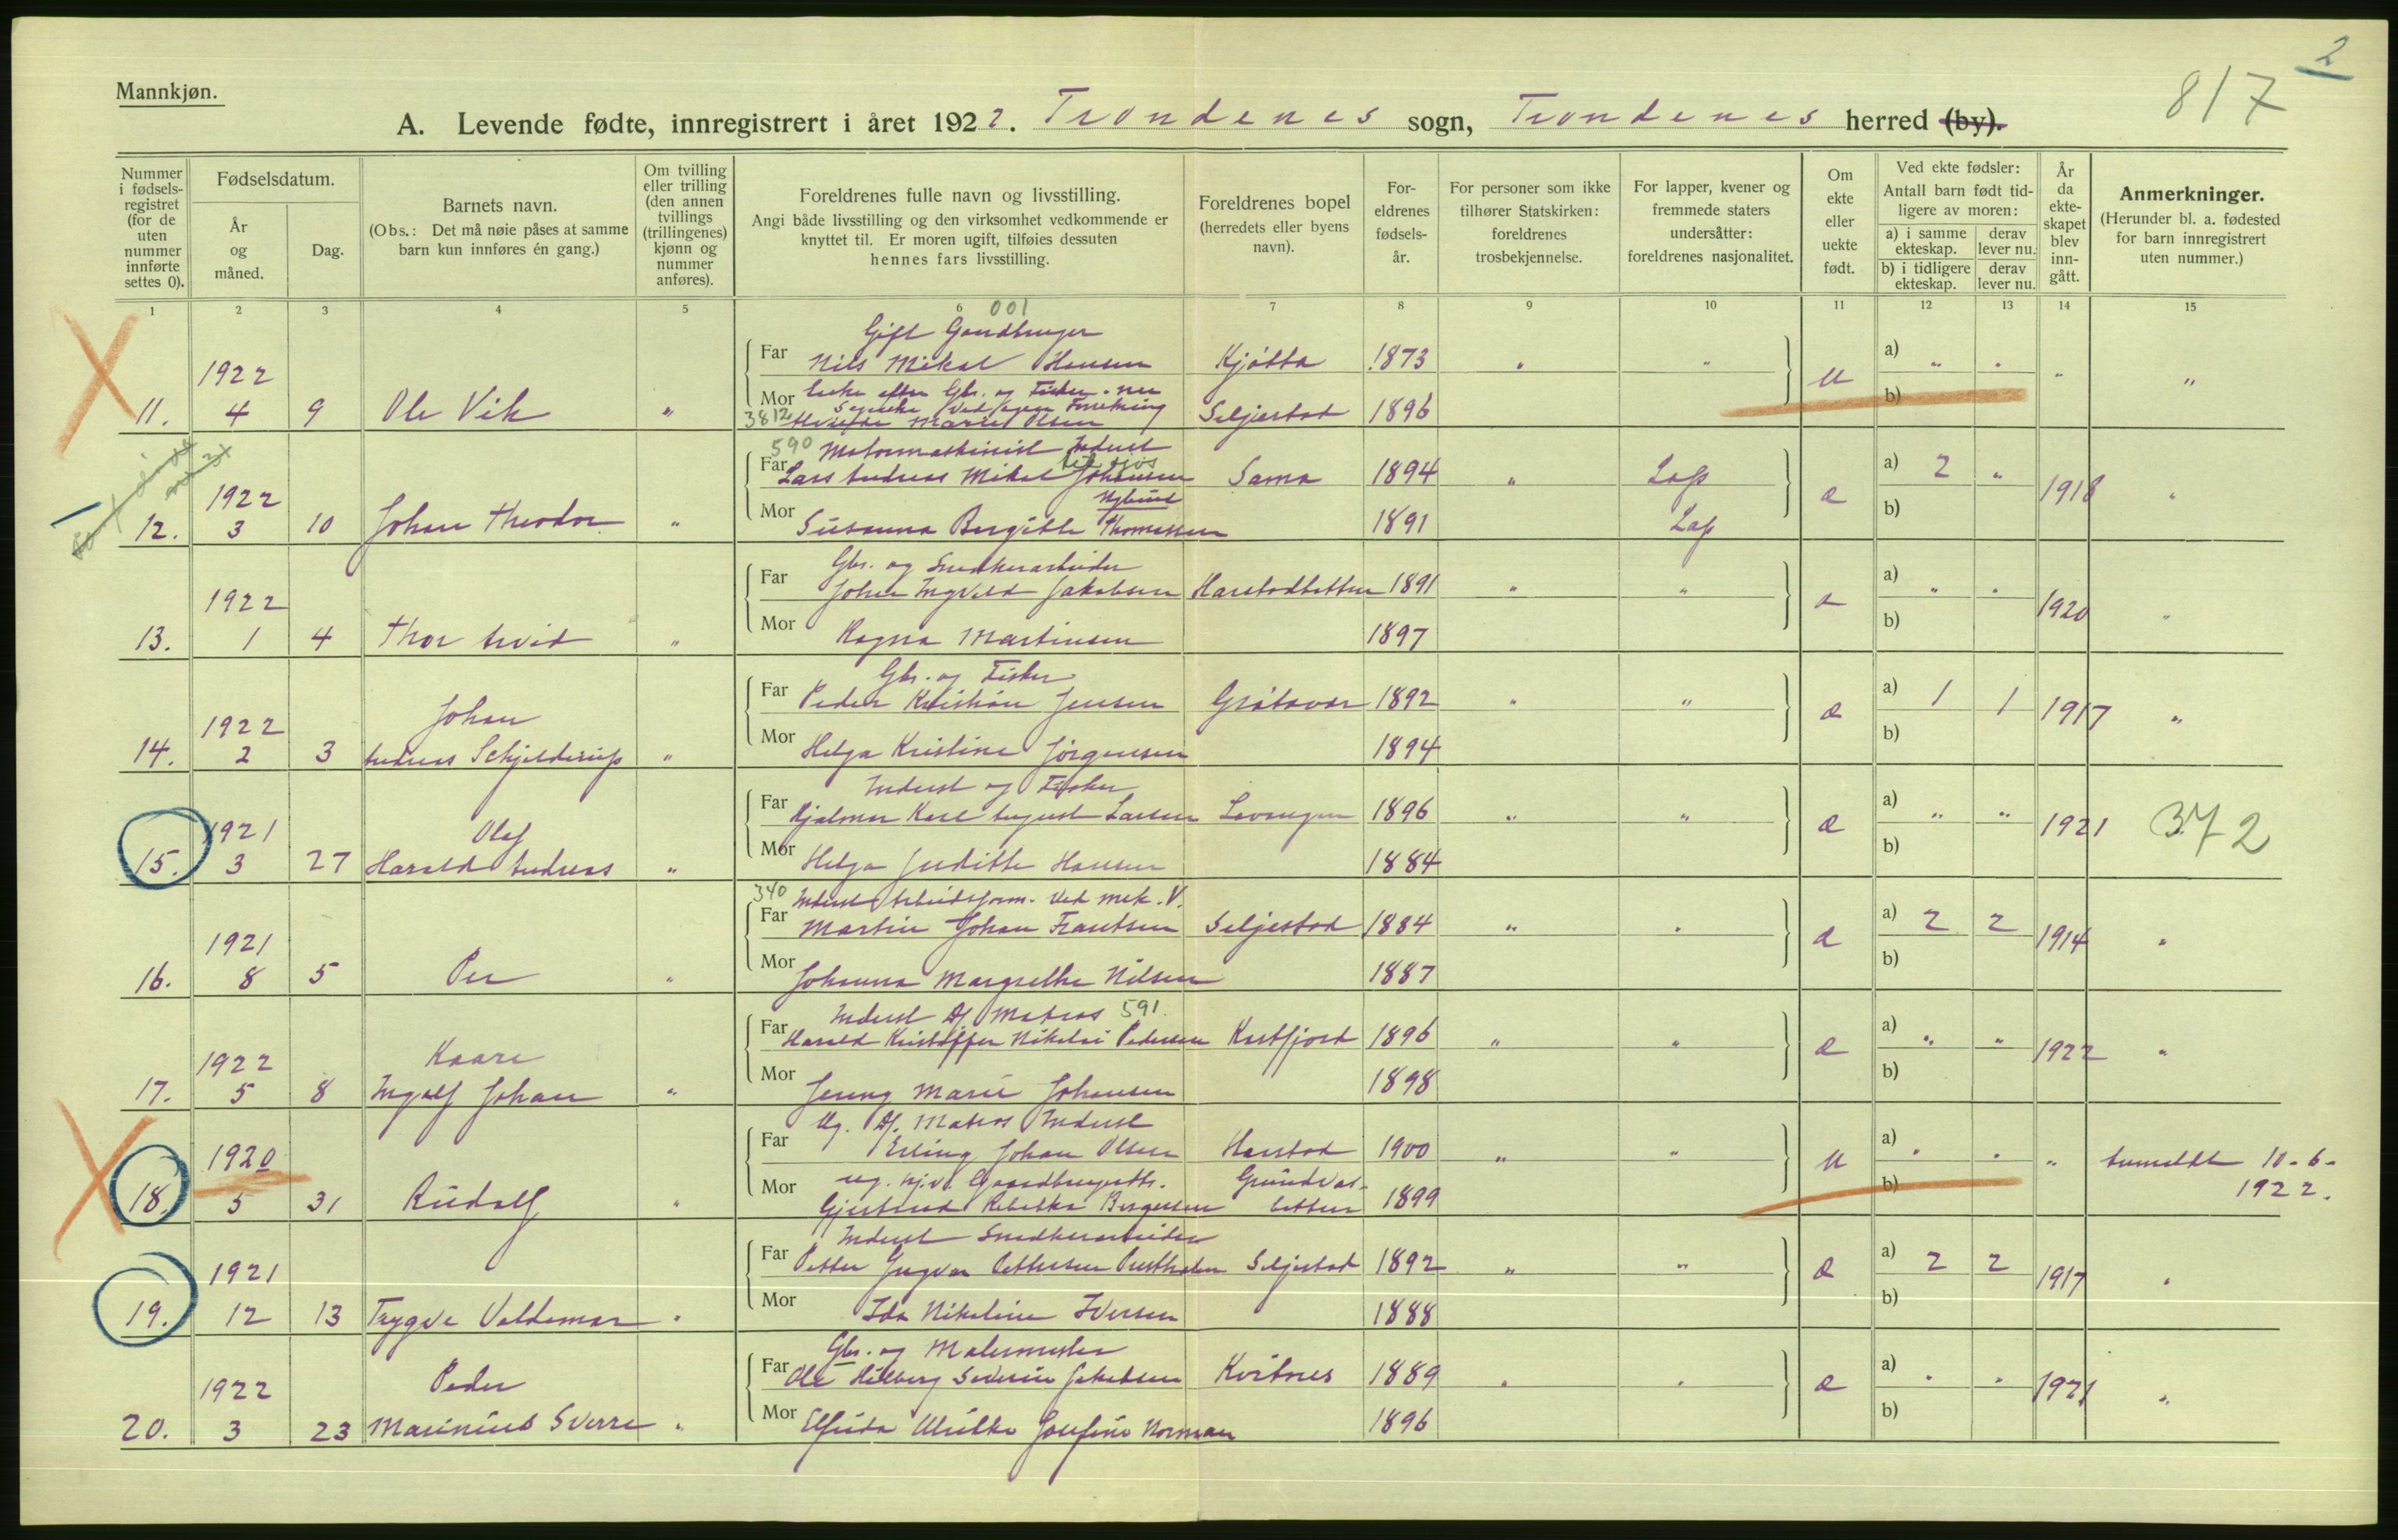 2
817
Mannkjøn.
A. Levende fødte, innregistrert i året 1922. Trondenes sogn, Trondenes herred (by).
Nummer i fødsels-registret (for de uten nummer innførte settes 0).
Fødselsdatum.
År og måned.
Dag.
Barnets navn.
(Obs.: Det må nøie påses at samme barn kun innføres én gang.)
Om tvilling eller trilling (den annen tvillings (trillingenes) kjønn og nummer anføres).
Foreldrenes fulle navn og livsstilling.
Angi både livsstilling og den virksomhet vedkommende er knyttet til. Er moren ugift, tilføies dessuten hennes fars livsstilling.
Foreldrenes bopel (herredets eller byens navn).
For-eldrenes fødsels-år.
For personer som ikke tilhører Statskirken: foreldrenes trosbekjennelse.
For lapper, kvener og fremmede staters undersåtter: foreldrenes nasjonalitet.
Om ekte eller uekte født.
Ved ekte fødsler:
Antall barn født tid-ligere av moren:
a) i samme ekteskap. derav lever nu.
b) i tidligere ekteskap. derav lever nu.
År da ekte-skapet blev inn-gått.
Anmerkninger.
(Herunder bl. a. fødested for barn innregistrert uten nummer.)
1 2 3 4 5 6 7 8 9 10 11 12 13 14 15
001
Gift Gaardbruger
1922 Far Nils Mikal Hansen Kjøtta 1873 " " a) " " " "
11. 4 9 Ole Vik " Mor Enke efter Gbr. og Fisker. nu
3812 Marie Olsen Seljestad 1896 u b)
590 Motormaskinist Inderst
til sjøs
1922 Far Lars Andreas Mikal Johansen Sama 1894 " Lap a) 2 " 1918 "
Nylund
12. 3 10 Johan Theodor " Mor Susanna Bergitte Thomassen 1891 Lap e b)
Gbr. og Snedkerarbeider
1922 Far Johan Ingvald Jakobsen Harstadbotten 1891 " " a) " " 1920 "
13. 1 4 Thor Arvid " Mor Ragna Martinsen 1897 e b)
Gbr. og Fisker
1922 Johan Far Peder Kristian Jensen Grøtavær 1892 " " a) 1 1 1917 "
14. 2 3 Andreas Schjelderup " Mor Helga Kristine Jørgensen 1894 e b)
Inderst og Fisker
1921 Olaf Far Hjalmar Karl August Larsen Lavangen 1896 " " a) " " 1921 372
15. 3 27 Harald Andreas " Mor Helga Judithe Hansen 1884 e b)
340 Inderst Arbeidsform. ved mek. V.
1921 Far Martin Johan Frantsen Seljestad 1884 " " a) 2 2 1914 "
16. 8 5 Per " Mor Johanna Margrethe Nilsen 1887 e b)
Inderst Df. Matros 591
1922 Kaare Far Harald Kristoffer Nikolai Pedersen Kastfjord 1896 " " a) " " 1922 "
17. 5 8 Ingolf Johan " Mor Jenny Marie Johansen 1898 e b)
Ug. Df. Matros Inderst
1920 Far Erling Johan Olsen Harstad 1900 " " a) " " " Anmeldt 10-6-1922.
Ug. Hj.v. Gaardbrugerdtr. Grundvas-
18. 5 31 Rudolf " Mor Gjertrud Rebekka Bergersen botten 1899 u b)
Inderst Snedkerarbeider
1921 Far Petter Ingvar Pettersen Prestholm Seljestad 1892 " " a) 2 2 1917 "
19. 12 13 Trygve Valdemar " Mor Ida Nikoline Iversen 1888 e b)
Gbr. og Malermester
1922 Peder Far Ole Hilberg Severin Jakobsen Kvitnes 1889 " " a) " " 1921 "
20. 3 23 Marinius Sverre " Mor Elfrida Ulrikke Josefine Norman 1896 e b)